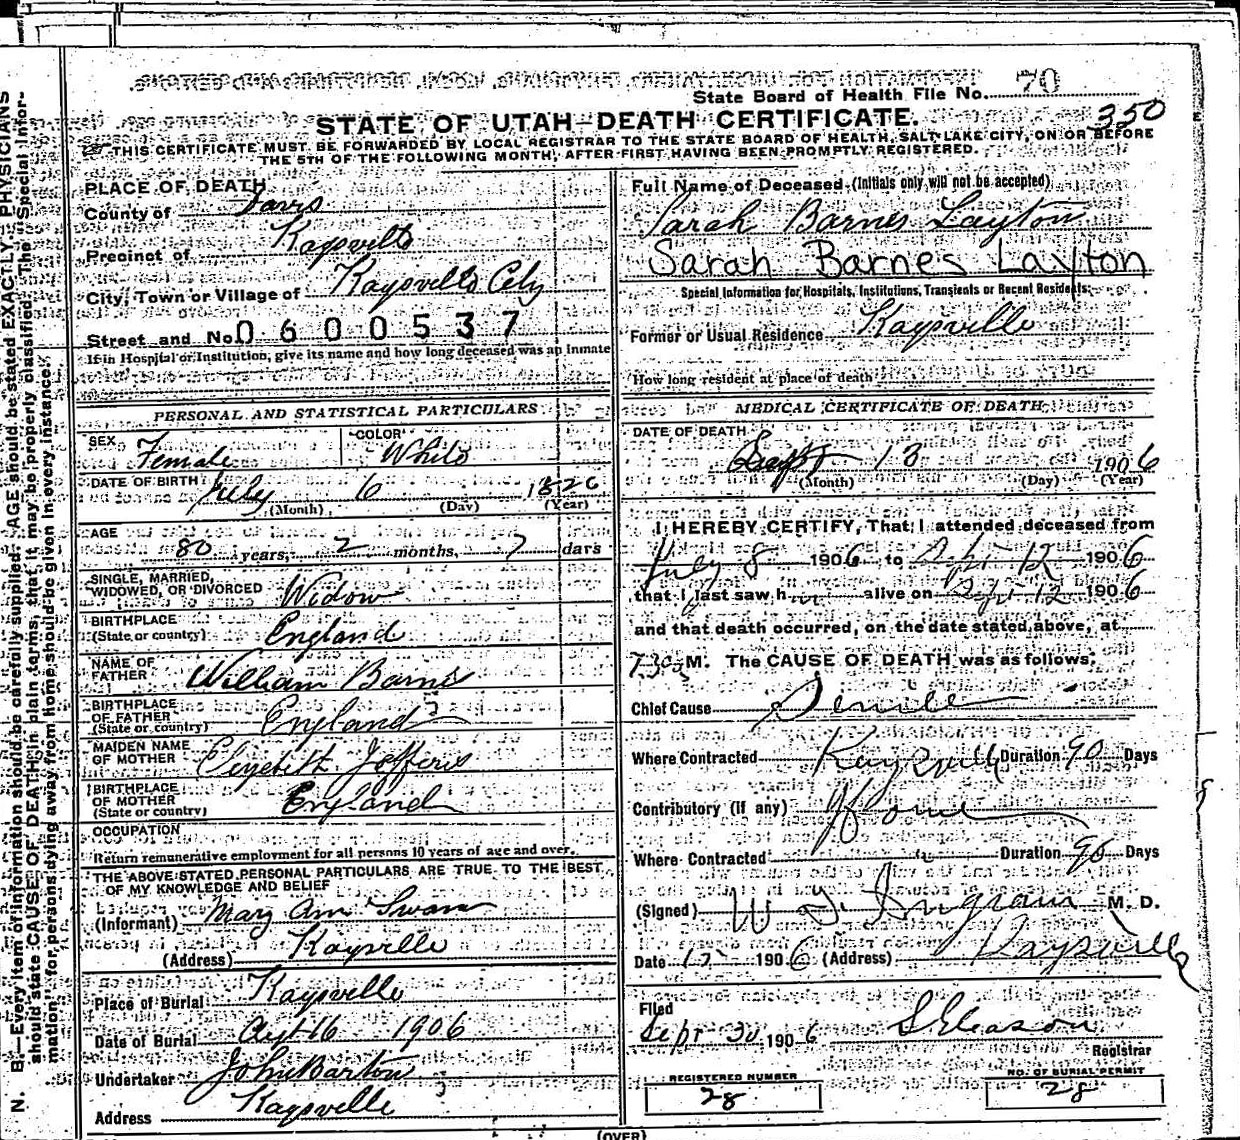 State Board of Health File No. 70
350
STATE OF UTAH—DEATH CERTIFICATE.
THIS CERTIFICATE MUST BE FORWARDED BY LOCAL REGISTRAR TO THE STATE BOARD OF HEALTH, SALT LAKE CITY, ON OR BEFORE
THE 5TH OF THE FOLLOWING MONTH, AFTER FIRST HAVING BEEN PROMPTLY REGISTERED.
N. B.—Every item of information should be carefully supplied. AGE should be stated EXACTLY. PHYSICIANS
should state CAUSE OF DEATH in plain terms, that it may be properly classified. The "Special Infor-
mation" for persons dying away from Home should be given in every instance.
PLACE OF DEATH
County of Davis
Precinct of Kaysville
City, Town or Village of Kaysville City
Street and No. 0600537
If in Hospital or Institution, give its name and how long deceased was an Inmate
PERSONAL AND STATISTICAL PARTICULARS
SEX Female COLOR White
DATE OF BIRTH July 6 1826
(Month) (Day) (Year)
AGE 80 years, 2 months, 7 days
SINGLE, MARRIED,
WIDOWED, OR DIVORCED Widow
BIRTHPLACE
(State or country) England
NAME OF
FATHER William Barns
BIRTHPLACE
OF FATHER
(State or country) England
MAIDEN NAME
OF MOTHER Elizebeth Jefferis
BIRTHPLACE
OF MOTHER
(State or country) England
OCCUPATION
Return remunerative employment for all persons 10 years of age and over.
THE ABOVE STATED PERSONAL PARTICULARS ARE TRUE TO THE BEST
OF MY KNOWLEDGE AND BELIEF
(Informant) Mary Ann Swan
(Address) Kaysville
Place of Burial Kaysville
Date of Burial 16 1906
Undertaker John Barton
Address Kaysville
Full Name of Deceased (Initials only will not be accepted)
Sarah Barnes Layton
Sarah Barnes Layton
Special Information for Hospitals, Institutions, Transients or Recent Residents:
Former or Usual Residence Kaysville
How long resident at place of death
MEDICAL CERTIFICATE OF DEATH
DATE OF DEATH
Sept 13 1906
(Month) (Day) (Year)
I HEREBY CERTIFY, That I attended deceased from
July 8 1906 to Sept 12 1906
that I last saw h alive on Sept 12 1906
and that death occurred, on the date stated above, at
7.30 a M. The CAUSE OF DEATH was as follows:
Chief Cause Senile
Where Contracted Kaysville Duration 90 Days
Contributory (if any)
Where Contracted Duration 90 Days
(Signed) W D. Ingram M. D.
Date 1906 (Address) Kaysville
Filed
Sept 30 1906 S Gleason
Registrar
REGISTERED NUMBER
28
NO. OF BURIAL PERMIT
28
(OVER)